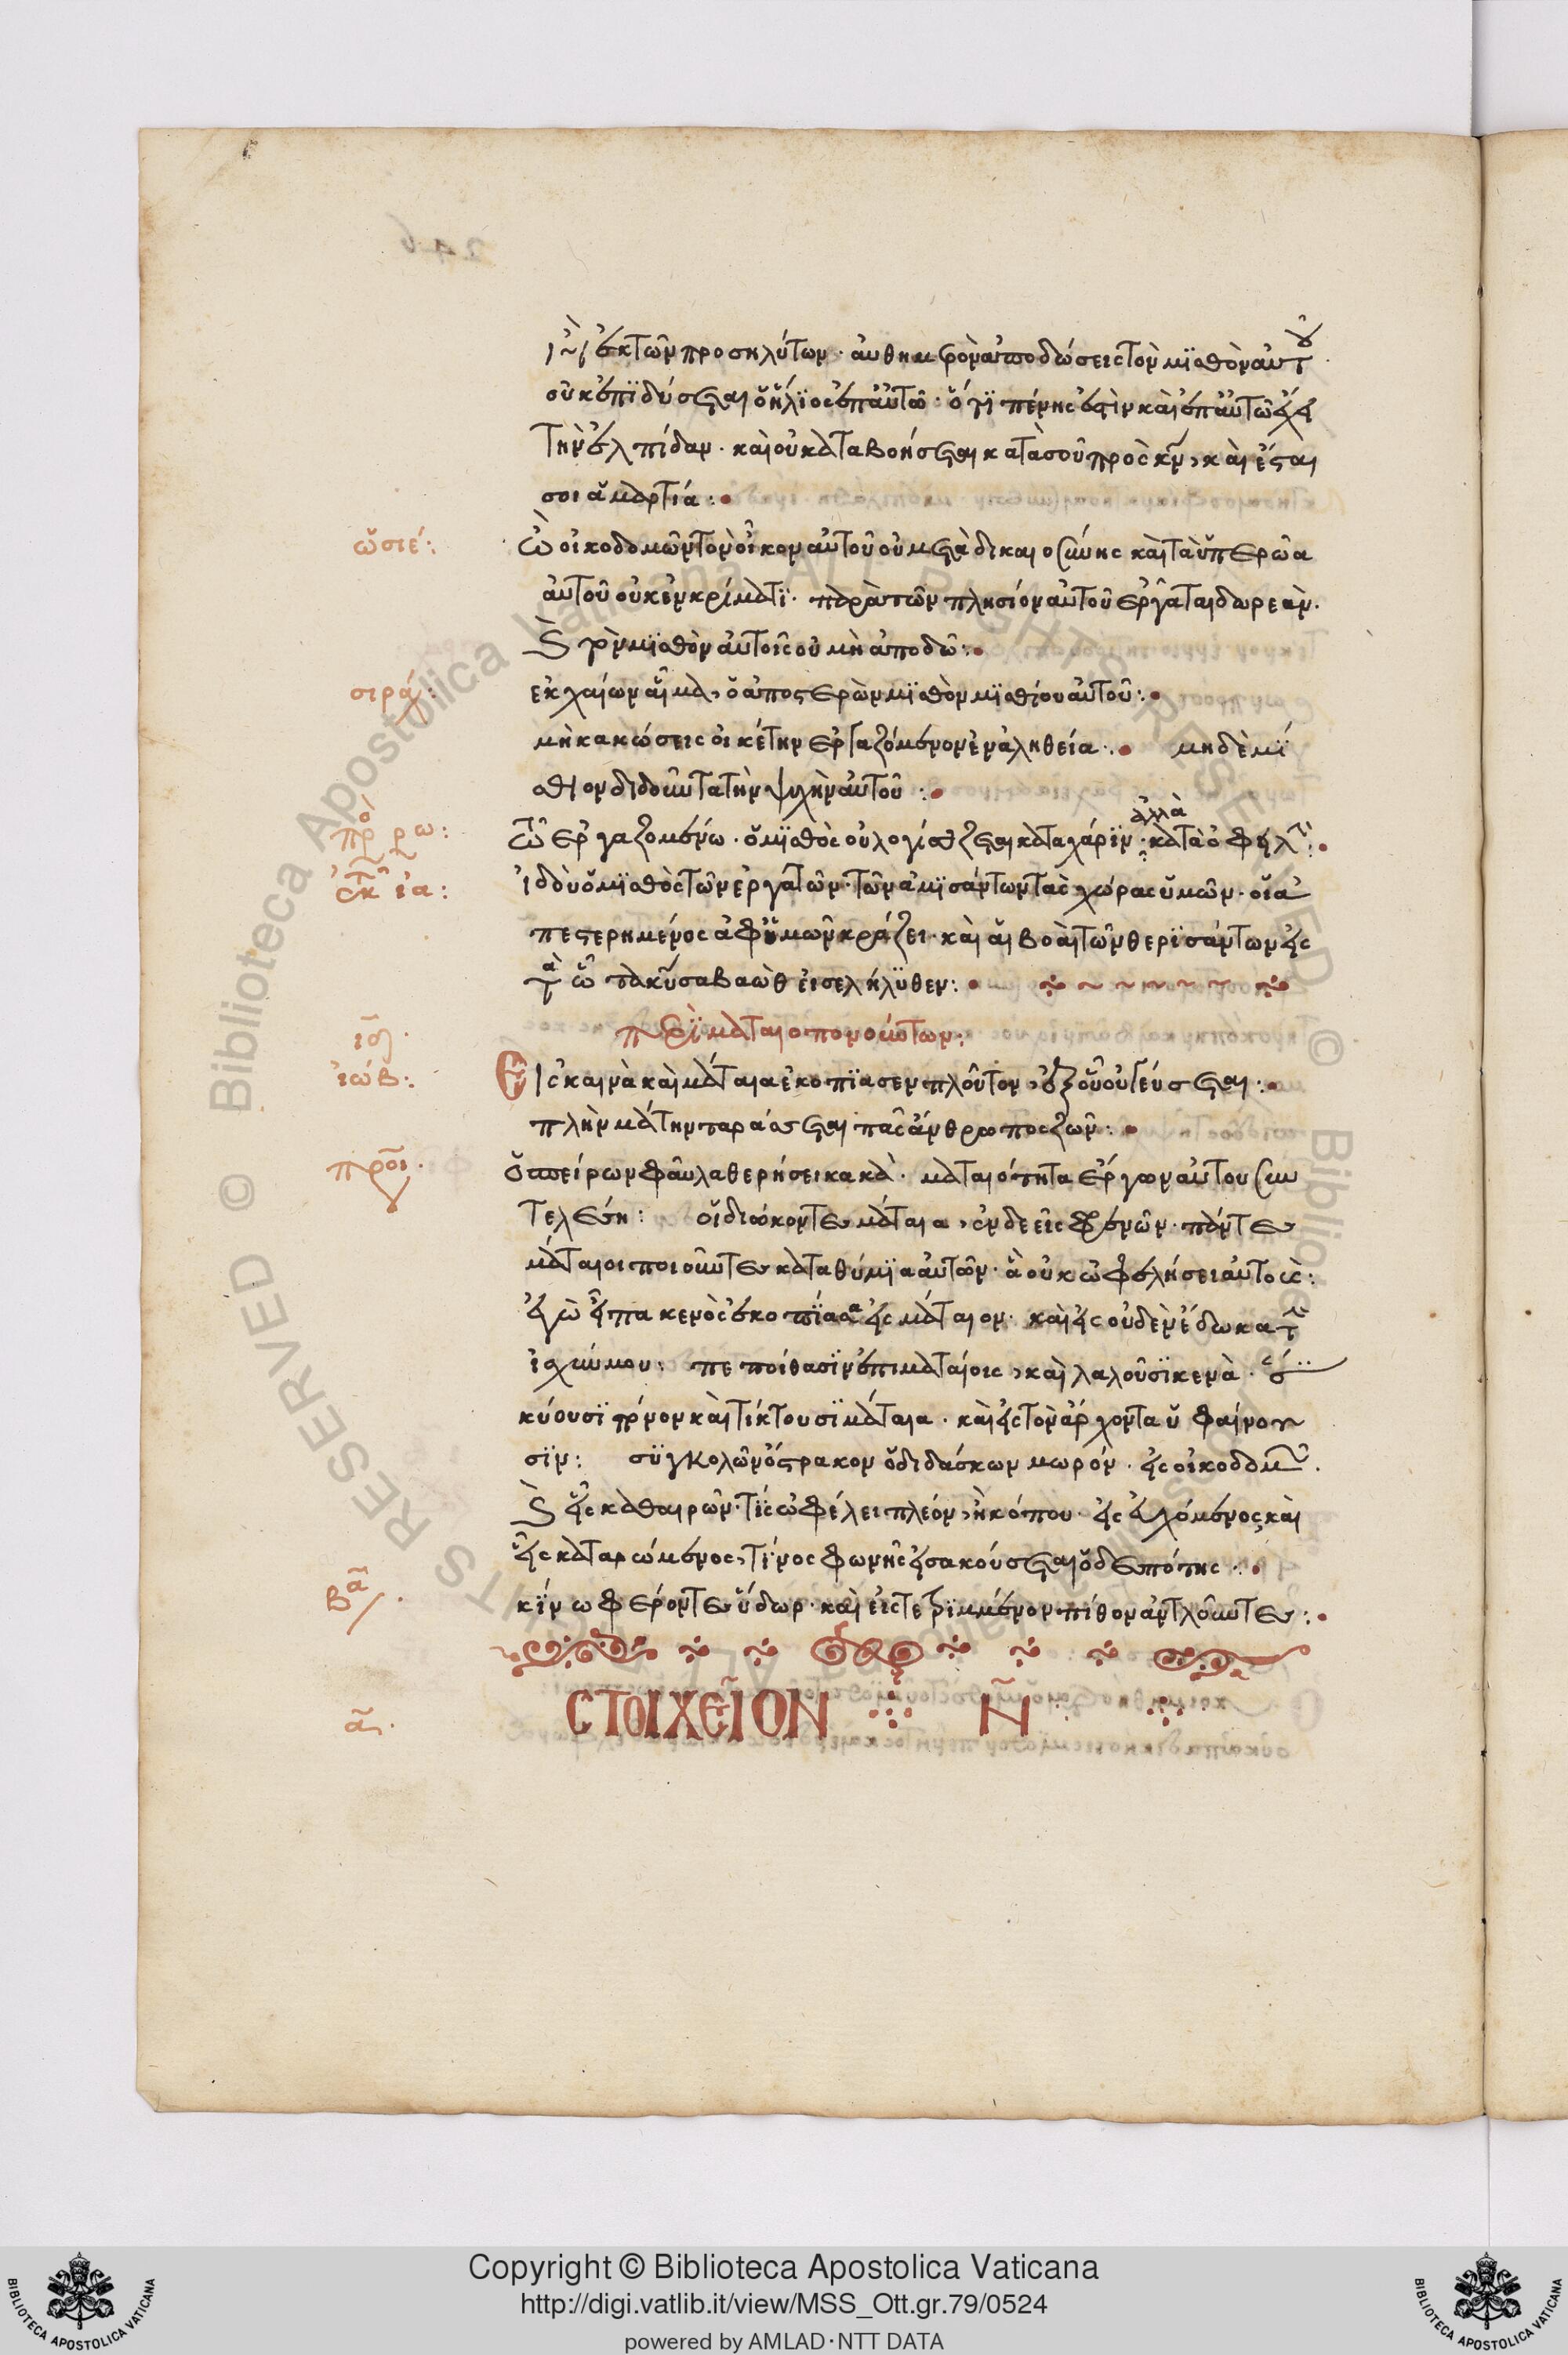 ἢ ἐκ τῶν προσηλύτων· αὐθημερὸν ἀποδώσεις τὸν μϊσθὸν αὐτοῦ·
οὐκ ἐπϊδύσεται ὁ ἥλϊος ἐπ αὐτῶ· ὅτϊ πένης ἐστὶν καὶ ἐπ αὐτῶ ἔχει
τὴν ἐλπίδαν· καὶ οὐ καταβοήσεται κατὰ σοῦ πρὸς κν, καὶ ἔσται
σοι ἁμαρτιά:
ὡσιέ:
Ὢ οἰκοδομῶν τὸν οἶκον αὐτοῦ οὐ μετὰ δικαιοσύνης καὶ τὰ ὑπερῶα
αὐτοῦ οὐκ ἐν κρίματϊ· παρὰ τῶν πλησίον αὐτοῦ ἐργᾶται δωρεάν·
καὶ τὸν μϊσθὸν αὐτοῖς οὐ μὴ ἀποδῶ:
σιράχ:
ἐκχαίων αἷμα, ὁ ἀποστερῶν μϊσθὸν μϊσθίου αὐτοῦ:
μὴ κακώσεις οἰκέτην ἐργαζόμενον ἐν ἀληθεία: μηδὲ μί
σθιον διδοῦντα τὴν ψυχὴν αὐτοῦ:
πρὸ ρω:
τῶ ἐργαζομένω· ὁ μϊσθὸς οὐ λογίσθζεται κατα χάρϊν· ἀλλὰ κατὰ ὀφείλ:
ἐκ τ ια:
ἰδοὺ ὁ μϊσθὸς τῶν ἐργατῶν· τῶν ἀμϊσάντων τὰς χώρας ὑμῶν· οἵα
πεστερημένος ἀφ ὑμῶν κράζει· καὶ αἱ βοαὶ τῶν θερϊσάντων εἰς
τὰ ὦτα κυ σαβαὼθ εἰσελήλϋθεν:
περὶ ματαιοπονούντων:
ἰώβ:
Εἰς καινὰ καὶ μάταια ἐκοπϊασεν πλοῦτον, ἐξ οὗ οὐ γεύσεται:
πλὴν μάτην ταράσσεται πᾶς ἄνθρωπος ζῶν:
προι·
ὁ σπείρων φαῦλα θερήσει κακά· ματαιότητα ἔργων αὐτου συν
τελέση: οἱ διώκοντες μάταια, ἐνδεεῖς φρενῶν· πάντες
μάταιοι ποιοῦντες καταθύμϊα αὐτῶν· ἃ οὐκ ὠφελήσει αὐτούς:
ἐγὼ εἶπα κενὸς ἐκοπϊασα εἰς μάταιον· καὶ εἰς οὐδὲν ἔδωκα τὴν
ἰσχύν μου: πεποίθασϊν ἐπι ματαίοις, καὶ λαλοῦσϊ κενὰ·
κύουσϊ πόνον καὶ τίκτουσϊ μάταια· καὶ εἰς τὸν ἄρχοντα ὑ φαίνου
σϊν: σϋγκολῶν ὄστρακον ὁ διδάσκων μωρόν· εἷς οἰκοδομ
καὶ εἷς καθαιρῶν· τίς ὠφέλει πλεόν, ἢ κόπου· εἷς εὐχόμενος καὶ
εἷς καταρώμενος, τίνος φωνῆς εἰσακούσεται ὁ δεσπότης:
βα·
κϊνωφέροντες ὕδωρ· καὶ εἰς τετριμμένον πίθον ἀντλοῦντες:
ΣΤΟΙΧΕΙΟΝ Ν
Copyright © Biblioteca Apostolica Vaticana
http://digi.vatlib.it/view/MSS_Ott.gr.79/0524
powered by AMLAD·NTT DATA